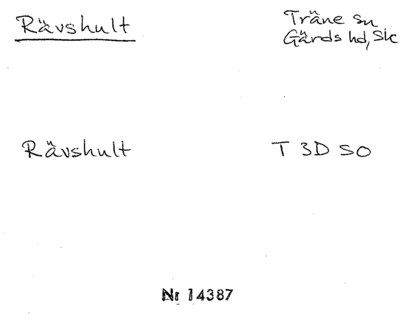 Rävshult
Träne sn
Gärds hd, Sk
Rävshult
T 3D SO
Nr 14387